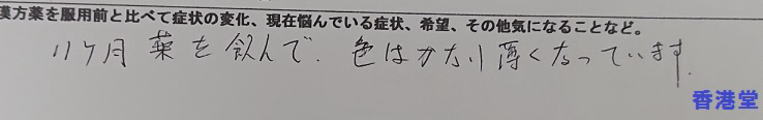 漢方薬を服用前と比べて症状の変化、現在悩んでいる症状、希望、その他気になることなど。
11ケ月 薬を飲んで、色はかなり薄くなっています.
香港堂